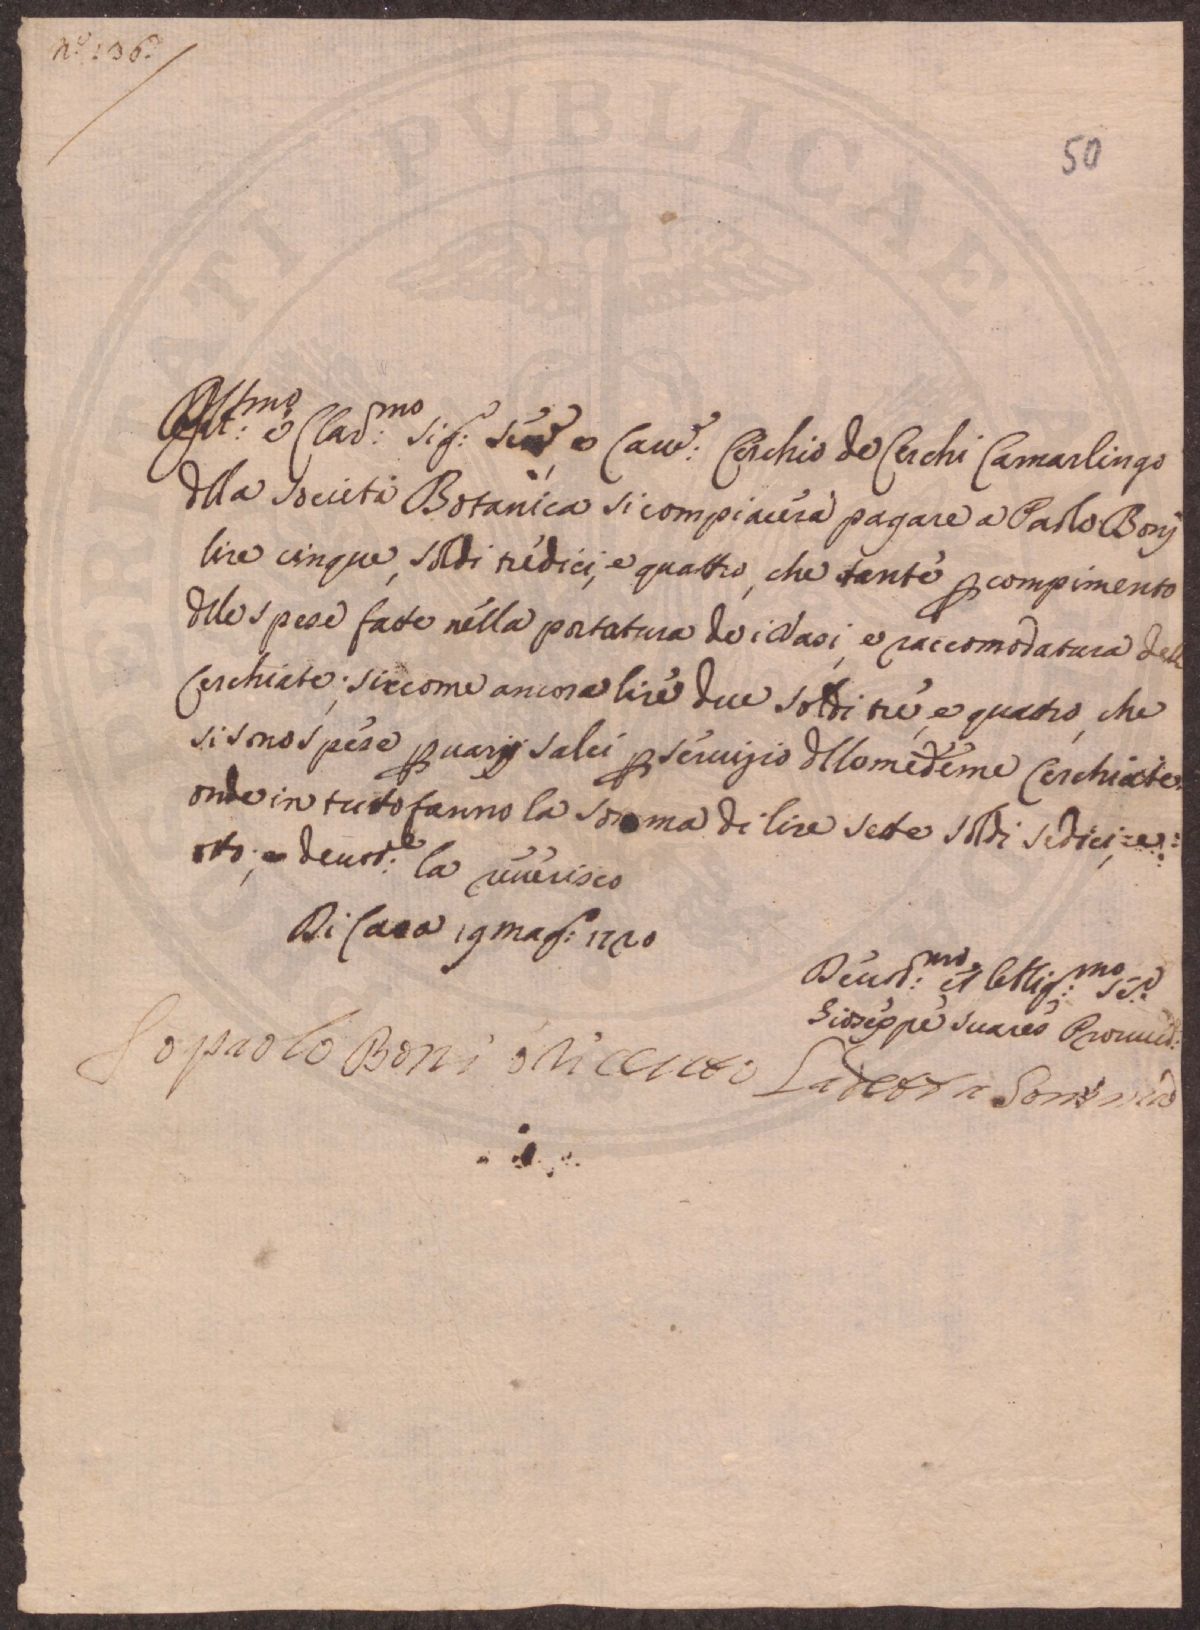 N.o: 36.
50
Ill:mo e Clar:mo Sig: Sen.e e Cav.e: Cerchio de Cerchi Camarlingo
dlla Società Botanica si compiacerà pagare a Paolo Bonj
lire cinque, soldi trédici, e quattro, che tanté p compimento
dlle spese fatte nélla portatura de i Vasi, e raccomodatura delle
Cerchiate; siccome ancora liré due soldi tré, e quattro, che
si sono spése p varij salci p servizio dlle medéme Cerchiate
onde in tutto fanno la somma di lire sette soldi sedici, e
otto; e devot:e la riverisco
Di Casa 19 Mag: 1720
Devot:mo et Obblig:mo Se.e
Gioseppe Suares Provved:
Io paolo Boni ó riceuto La detta Somma
PUBLICAE